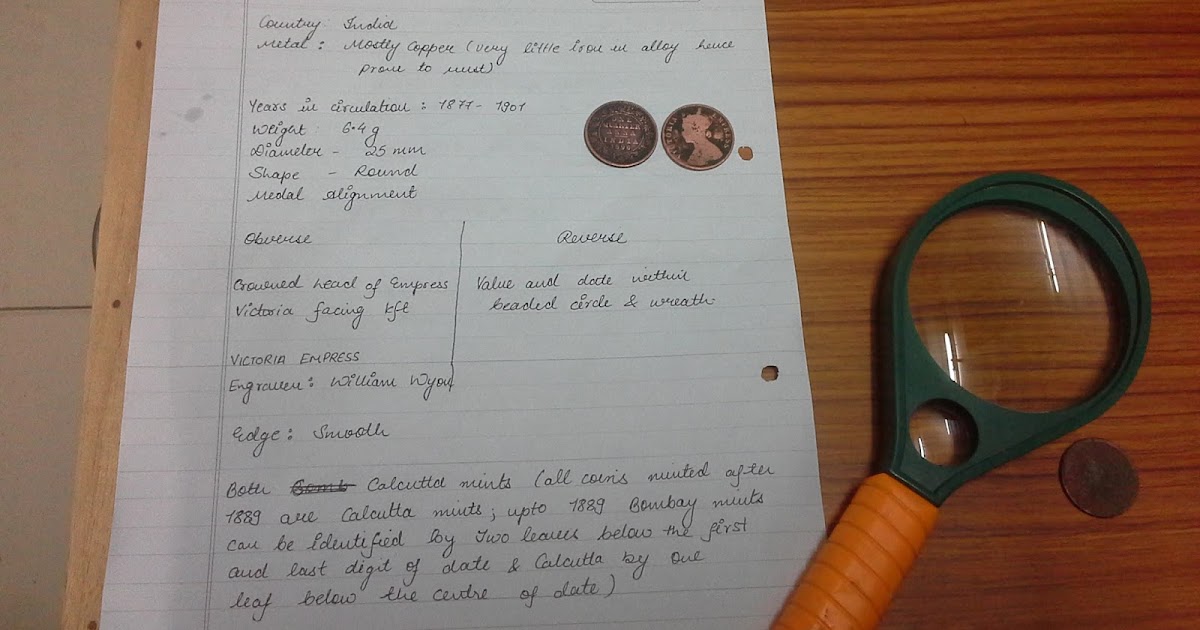 Country: India
Metal: Mostly Copper (very little iron in alloy hence
prone to rust)
Years in circulation: 1877-1901
Weight: 6.4g
Diameter - 25 mm
Shape - Round
Medal alignment
QUARTER
INDIA
VICTORIA EMPRESS
Obverse
Reverse
Crowned head of Empress
Victoria facing left
Value and date within
beaded circle & wreath
VICTORIA EMPRESS
Engraver: William Wyon
Edge: Smooth
Both Bomb Calcutta mints (all coins minted after
1889 are Calcutta mints; upto 1889 Bombay mints
can be identified by Two leaves below the first
and last digit of date & Calcutta by one
leaf below the centre of date)